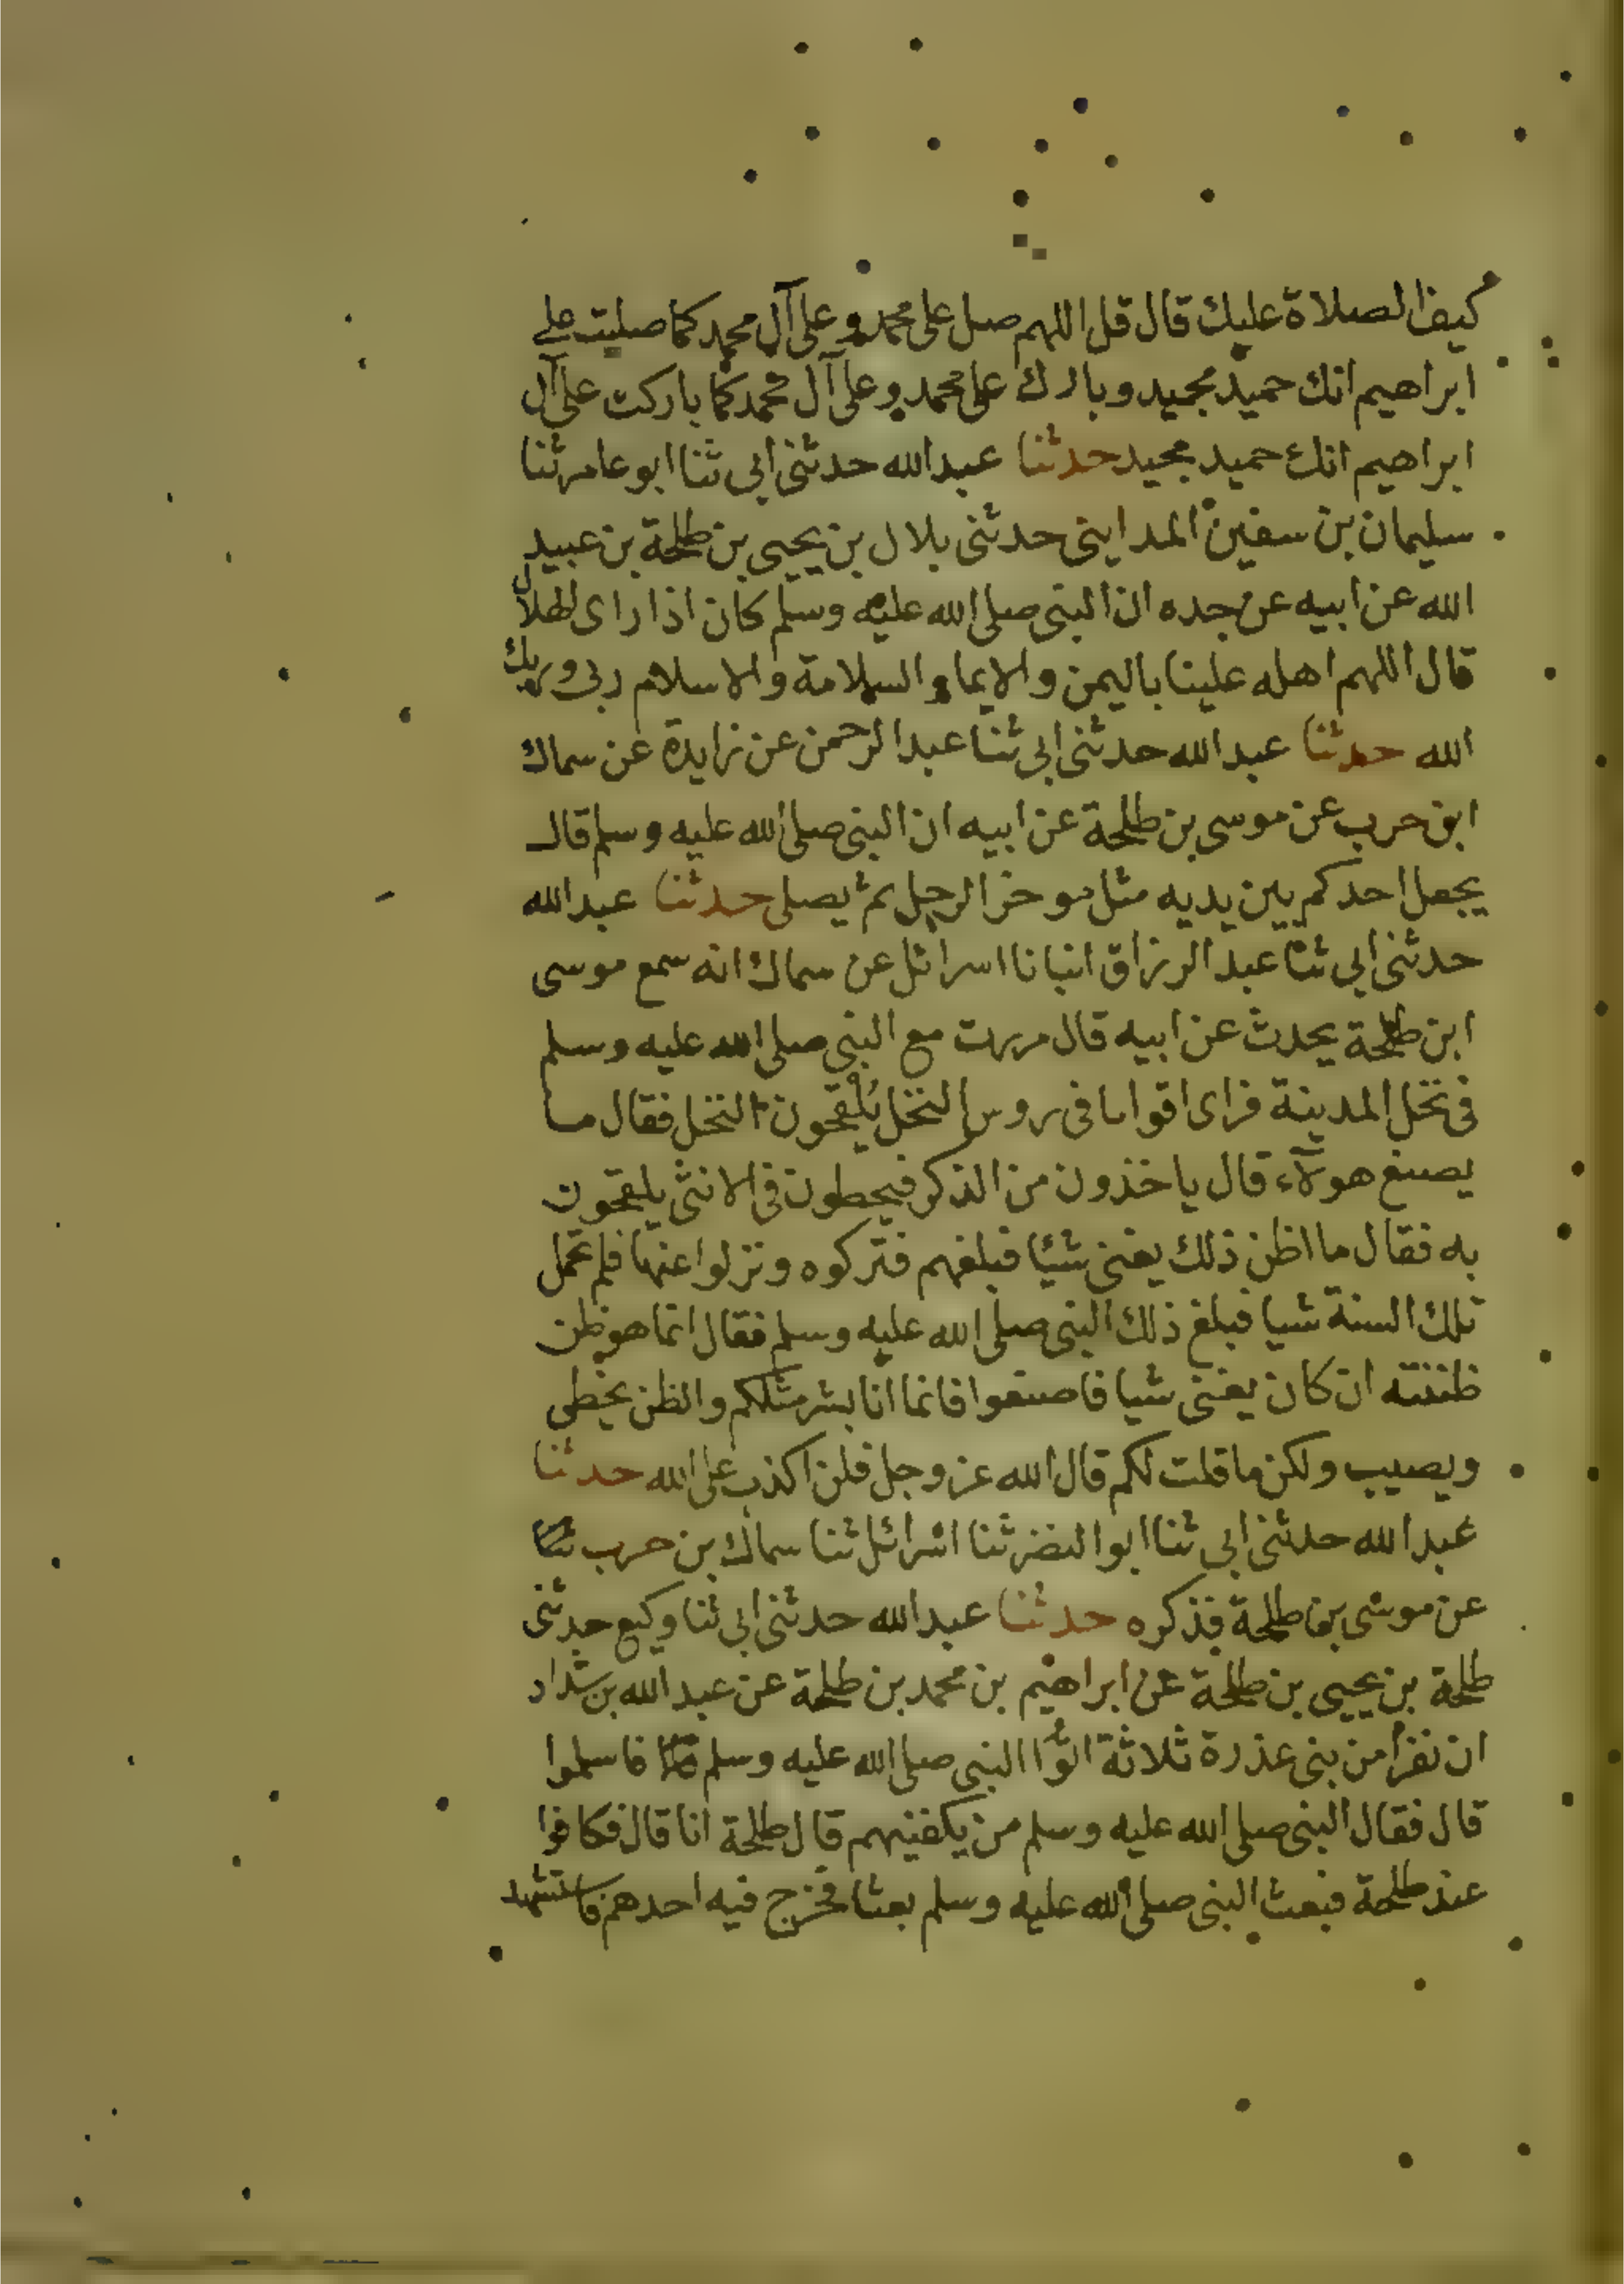 كيف الصلاة عليك قال قل اللهم صل على محمد وعلى آل محمد كما صليت على
ابراهيم انك حميد مجيد وبارك على محمد وعلى آل محمد كما باركت على آل
ابراهيم انك حميد مجيد حدثنا عبد الله حدثنى ابى ثنا ابو عامر ثنا
سليمان بن سفين المداينى حدثنى بلال بن يحيى بن طلحة بن عبيد
الله عن ابيه عن جده ان النبى صلى الله عليه وسلم كان اذا راى الهلال
قال اللهم اهله علينا باليمن والايما والسلامة والاسلام ربى وربك
الله حدثنا عبد الله حدثنى ابى ثنا عبد الرحمن عن زايدة عن سماك
ابن حرب عن موسى بن طلحة عن ابيه ان النبى صلى الله عليه وسلم قال
يجعل احدكم بين يديه مثل موخر الرحل ثم يصلى حدثنا عبد الله
حدثنى ابى ثنا عبد الرزاق انبانا اسرائل عن سماك انه سمع موسى
ابن طلحة يحدث عن ابيه قال مررت مع النبى صلى الله عليه وسلم
فى نخل المدينة فراى اقواما فى روس النخل يُلْقحون النخل فقال ما
يصنع هولآء قال ياخذون من الذكر فيحطون فى الانثى يلقحون
به فقال ما اظن ذلك يغنى شيئا فبلغهم فتركوه ونزلوا عنها فلم تحمل
تلك السنة شيا فبلغ ذلك النبى صلى الله عليه وسلم فقال انما هو ظن
ظننته ان كان يغنى شيا فاصنعوا فانما انا بشر مثلكم والظن يخطى
ويصيب ولكن ما قلت لكم قال الله عز وجل فلن اكذب على الله حدثنا
عبد الله حدثنى ابى ثنا ابو النضر ثنا اسرائل ثنا سماك بن حرب
عن موسى بن طلحة فذكره حدثنا عبد الله حدثنى ابى ثنا وكيع حدثنى
طلحة بن يحيى بن طلحة عن ابراهيم بن محمد بن طلحة عن عبد الله بن شداد
ان نفرا من بنى عذرة ثلاثة اتوا النبى صلى الله عليه وسلم فاسلموا
قال فقال النبى صلى الله عليه وسلم من يكفينهم قال طلحة انا قال فكانوا
عند طلحة فبعث النبى صلى الله عليه وسلم بعثا فخرج فيه احدهم فاستشهد